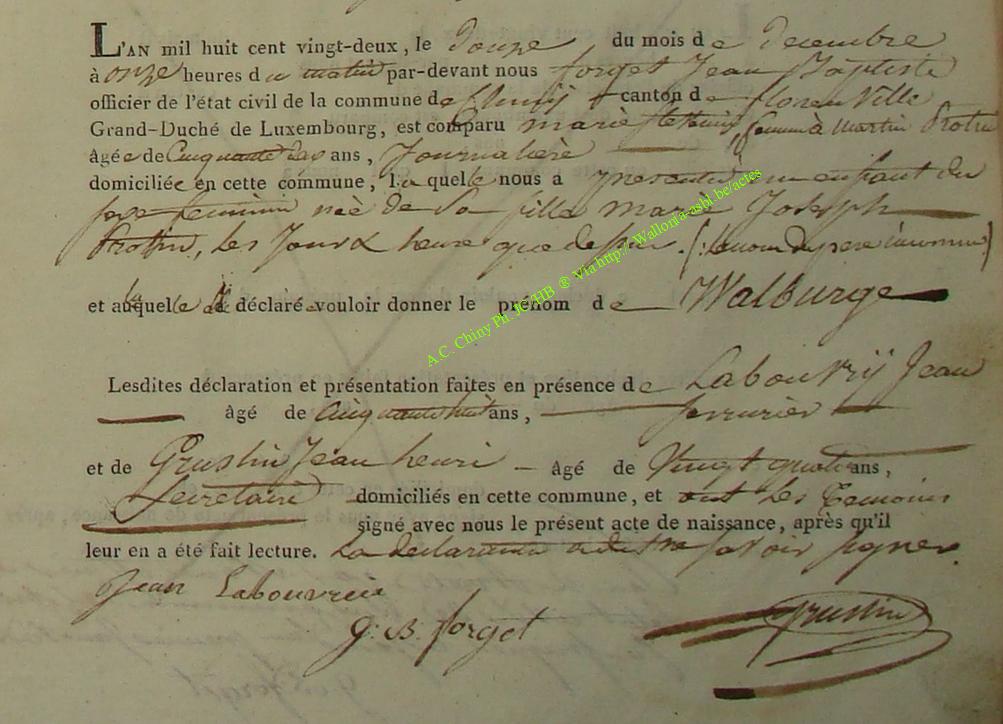 L'AN mil huit cent vingt-deux, le Douze du mois de Decembre
à onze heures du matin par-devant nous forget Jean Baptiste
officier de l'état civil de la commune de Chiny canton de florenville
Grand-Duché de Luxembourg, est comparu marie femme à Martin Protin
âgée de Cinquante ans, Journalière
domiciliée en cette commune, la quelle nous a presenté un enfant du
sexe feminin née de Sa fille marie Joseph
Protin, les Jour & heure que dessus. (: le nom du pere inconnu)
et auquel le déclaré vouloir donner le prénom de Walburge
Lesdites déclaration et présentation faites en présence de Labouvrij Jean
âgé de Cinquante huit ans, serrurier
et de Grustin Jean henri - âgé de Vingt quatre ans,
Secretaire domiciliés en cette commune, et ont les temoins
signé avec nous le présent acte de naissance, après qu'il
leur en a été fait lecture. La declarante a dit ne savoir signer.
Jean Labouvrie
J. B. forget Grustin
A.C. Chiny Ph. JC/HB ® Via http://Wallonia-asbl.be/actes